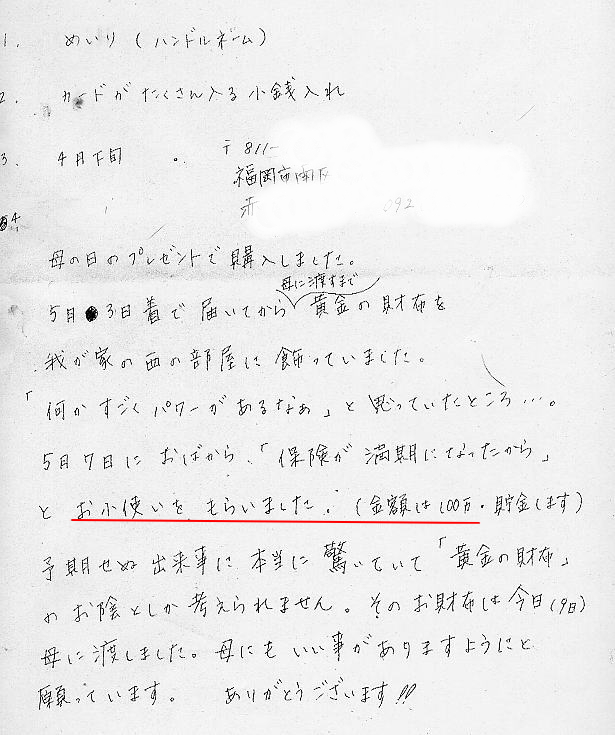 1. めいり(ハンドルネーム)
2. カードがたくさん入る小銭入れ
3. 4月下旬 。 〒811-
福岡市南区
赤
092
4
母の日のプレゼントで購入しました。
母に渡すまで
5月3日着で届いてから 黄金の財布を
我が家の西の部屋に飾っていました。
「何かすごくパワーがあるなぁ」と思っていたところ…。
5月7日におばから、「保険が満期になったから」
とお小使いをもらいました。(金額は100万・貯金します)
予期せぬ出来事に本当に驚いていて「黄金の財布」
のお陰としか考えられません。そのお財布は今日(9日)
母に渡しました。母にもいい事がありますようにと
願っています。 ありがとうございます!!